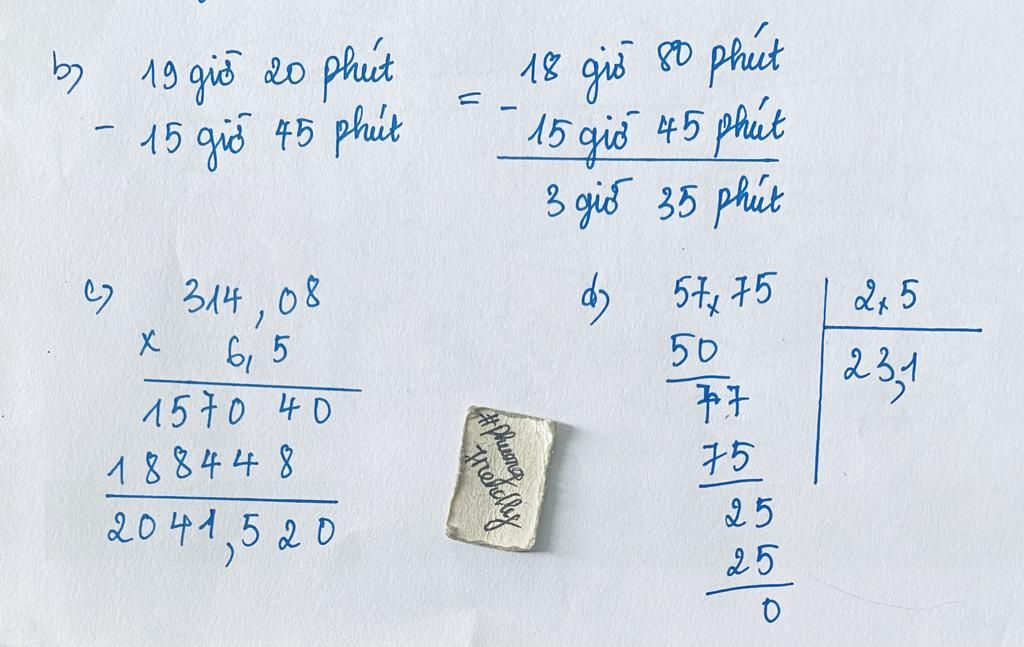 b) 19 giờ 20 phút = 18 giờ 80 phút
- 15 giờ 45 phút - 15 giờ 45 phút
3 giờ 35 phút
c) 314,08
x 6,5
1570 40
188448
2041,520
d) 57,75 2,5
50 23,1
77
75
25
25
0
#phuong
friendly